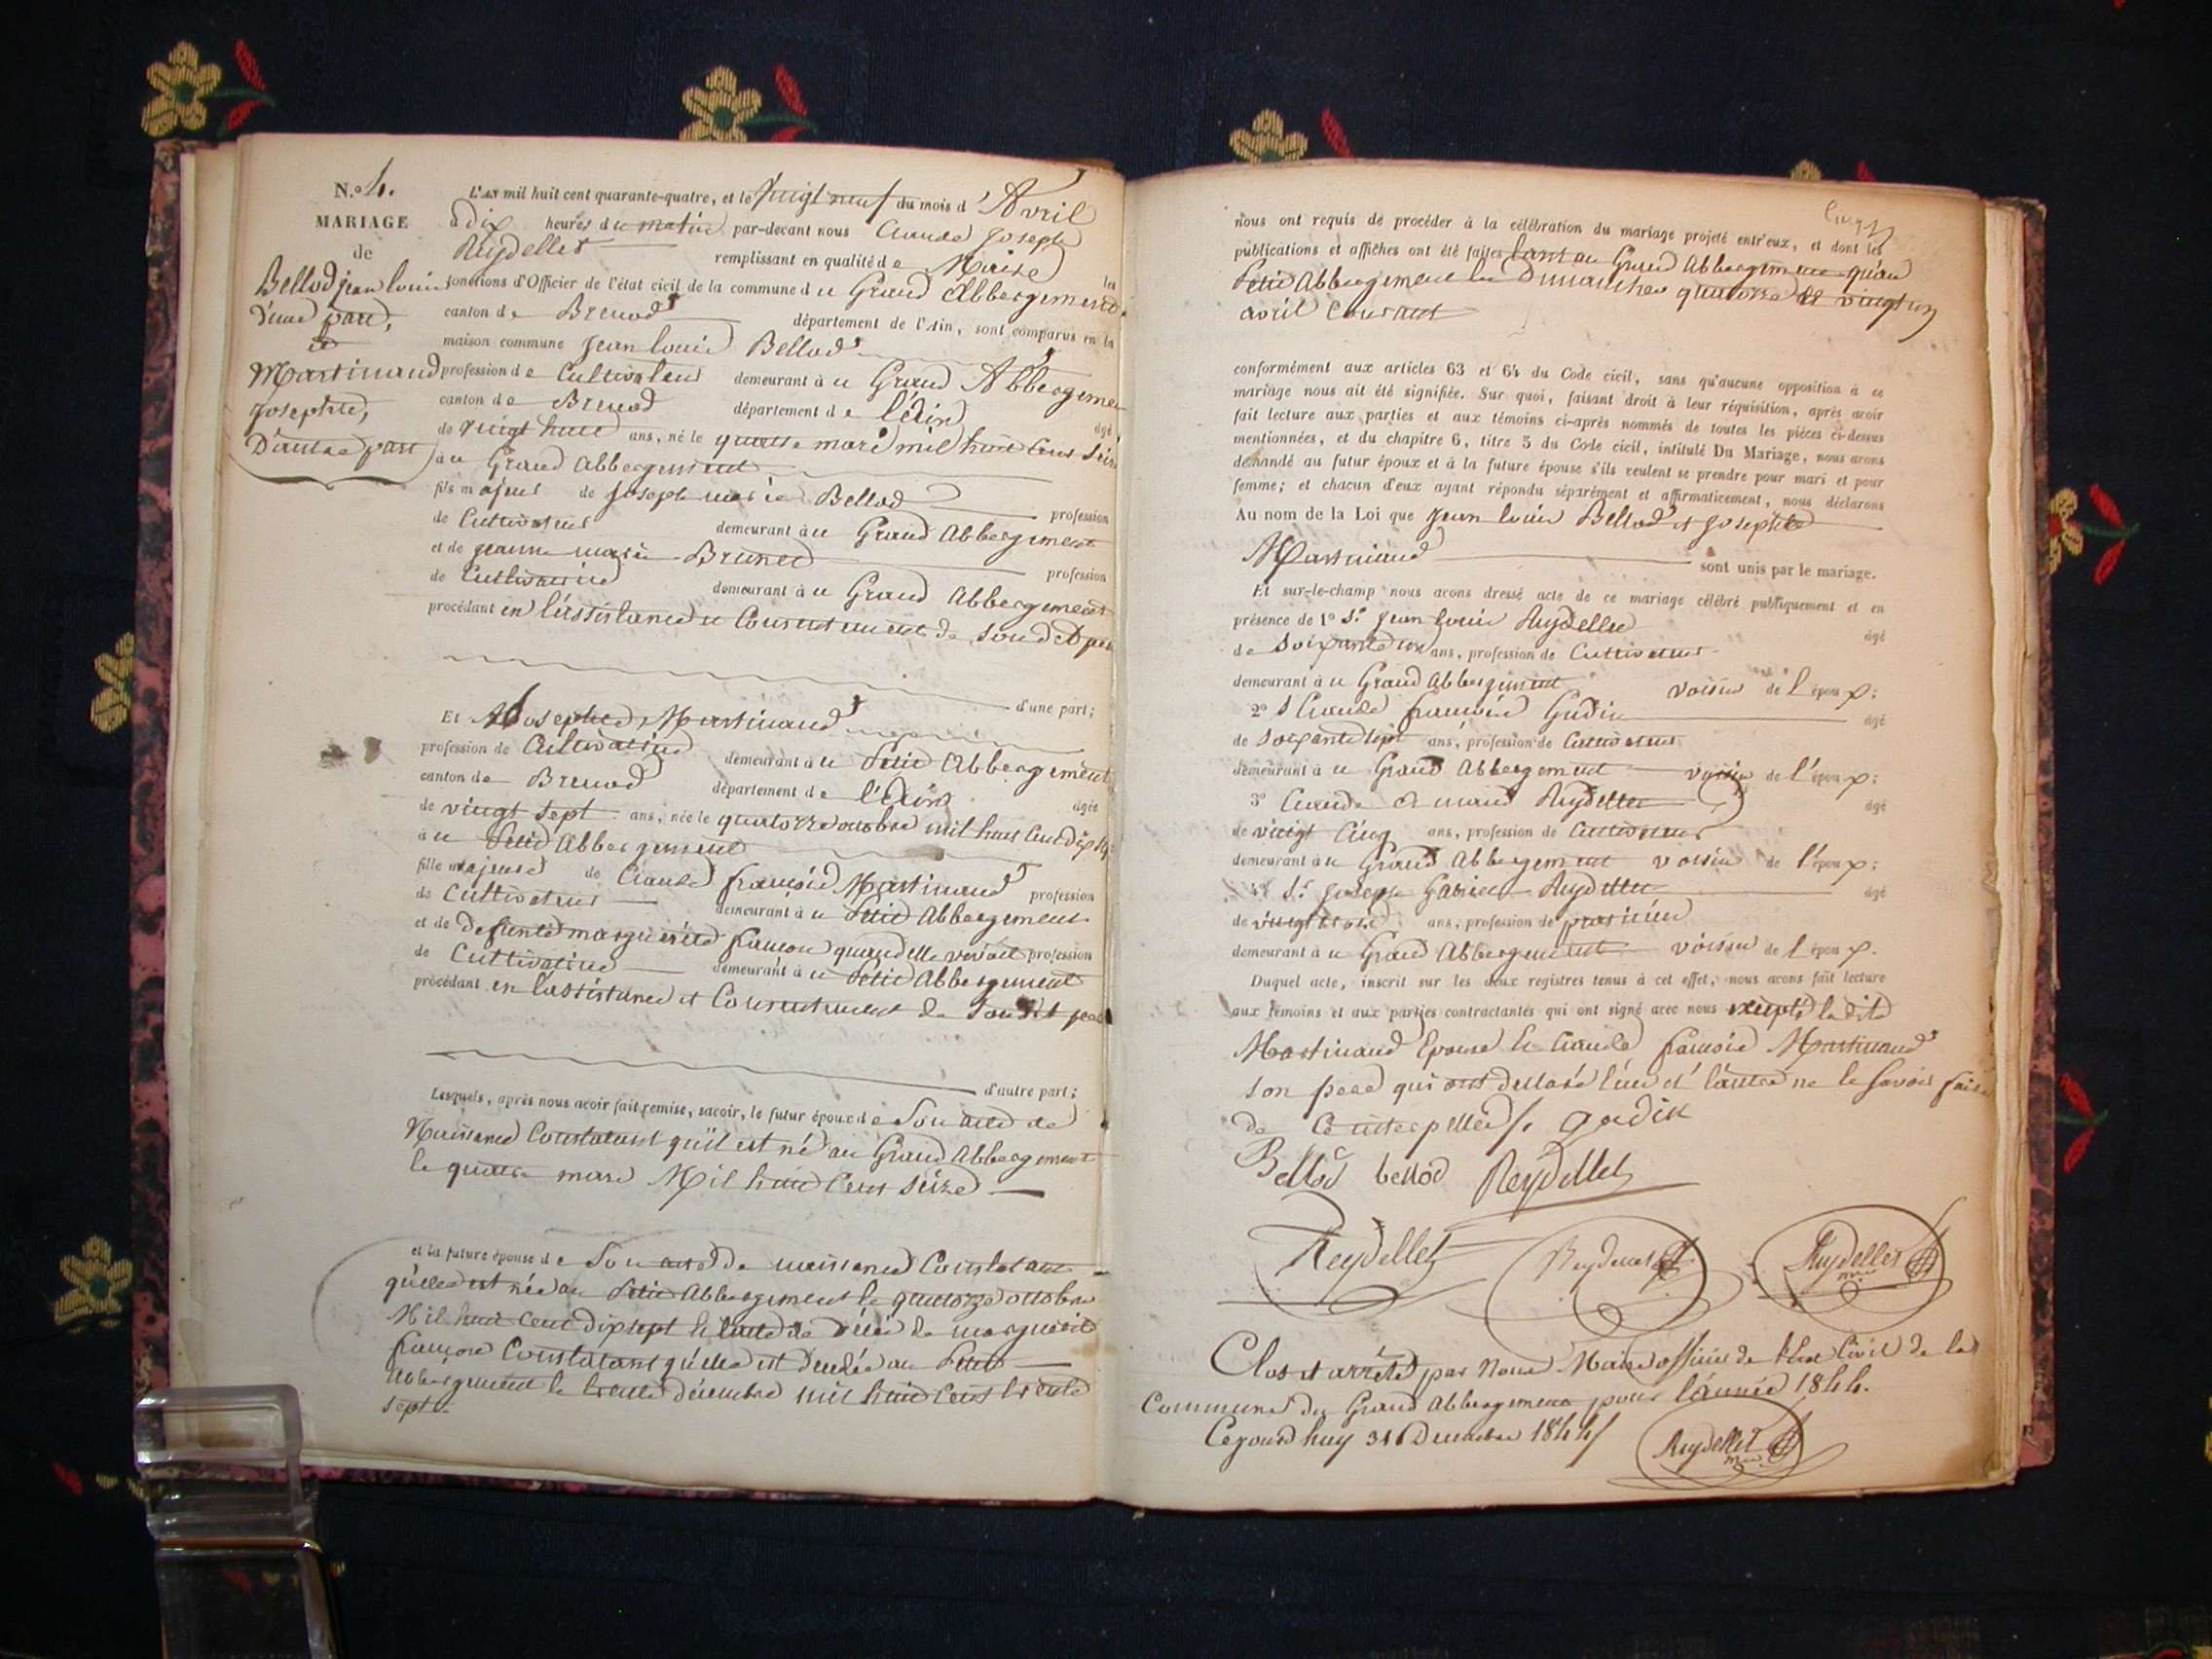 N.o 4.
MARIAGE
de
Bellod jean louis
d'une part,
et
Martinand
josephte,
D'autre part
L'an mil huit cent quarante-quatre, et le vingt neuf du mois d'Avril
à dix heures du matin par-devant nous Claude Joseph
Reydellet remplissant en qualité de Maire les
fonctions d'Officier de l'état civil de la commune du Grand Abbergement
canton de Brenod département de l'Ain, sont comparus en la
maison commune Jean louis Bellod
profession de Cultivateur demeurant à u Grand Abbergement
canton de Brenod département de l'Ain âgé
de vingt huit ans, né le quatre mars mil huit cent seize
à u Grand Abbergement
fils majeur de joseph marie Bellod profession
de Cultivateur demeurant à u Grand Abbergement
et de jeanne marie Brunet profession
de Cultivatrice demeurant à u Grand Abbergement
procédant en l'assistance et Consentement de son dit père
d'une part;
Et Josephte Martinand
profession de Cultivatrice demeurant à u Petit Abbergement
canton de Brenod département de l'Ain âgée
de vingt sept ans, née le quatorze octobre mil huit Cent dix sept
à u Petit Abbergement
fille majeure de Claude françois Martinand profession
de Cultivateur demeurant à u Petit Abbergement
et de defunte marguerite quand elle vivait profession
de Cultivatrice demeurant à u Petit Abbergement
procédant en l'assistance et Consentement de son dit père
d'autre part;
Lesquels, après nous avoir fait remise, savoir, le futur époux de Son acte de
Naissance Constatant qu'il est né au Grand Abbergement
le quatre mars Mil huit Cent seize
et la future épouse de Son acte de naissance Constatant
qu'elle est née au Petit Abbergement le quatorze octobre
Mil huit Cent dix sept et l'acte de décès de marguerite
Constatant qu'elle est décédée au Petit
Abbergement le trente décembre mil huit Cent trente
sept
nous ont requis de procéder à la célébration du mariage projeté entr'eux, et dont les
publications et affiches ont été faites tant au Grand Abbergement qu'au
Petit Abbergement les Dimanches quatorze et vingt un
avril Courant
conformément aux articles 63 et 64 du Code civil, sans qu'aucune opposition à ce
mariage nous ait été signifiée. Sur quoi, faisant droit à leur réquisition, après avoir
fait lecture aux parties et aux témoins ci-après nommés de toutes les pièces ci-dessus
mentionnées, et du chapitre 6, titre 5 du Code civil, intitulé Du Mariage, nous avons
demandé au futur époux et à la future épouse s'ils veulent se prendre pour mari et pour
femme; et chacun d'eux ayant répondu séparément et affirmativement, nous déclarons
Au nom de la Loi que Jean louis Bellod et Josephte
Martinand sont unis par le mariage.
Et sur-le-champ nous avons dressé acte de ce mariage célébré publiquement et en
présence de 1º Sr Jean louis Reydellet âgé
de Soixante ans, profession de Cultivateur
demeurant à u Grand Abbergement voisin de l'époux;
2º S Claude françois Gudin âgé
de Soixante sept ans, profession de Cultivateur
demeurant à u Grand Abbergement voisin de l'époux;
3º Claude armand Reydellet âgé
de vingt Cinq ans, profession de Cultivateur
demeurant à u Grand Abbergement voisin de l'époux;
4º Sr Joseph Gabriel Reydellet âgé
de vingt trois ans, profession de praticien
demeurant à u Grand Abbergement voisin de l'époux.
Duquel acte, inscrit sur les deux registres tenus à cet effet, nous avons fait lecture
aux témoins et aux parties contractantes qui ont signé avec nous excepté la dite
Martinand Epouse et Claude françois Martinand
son père qui ont déclaré l'un et l'autre ne le savoir faire
de Ce interpellés. gudin
Bellod bellod Reydellet
Reydellet Reydellet Reydellet
Clos et arrêté par Nous Maire officier de l'Etat Civil de la
Commune du Grand Abbergement pour l'année 1844.
Cejourd'huy 31 Decembre 1844
Reydellet